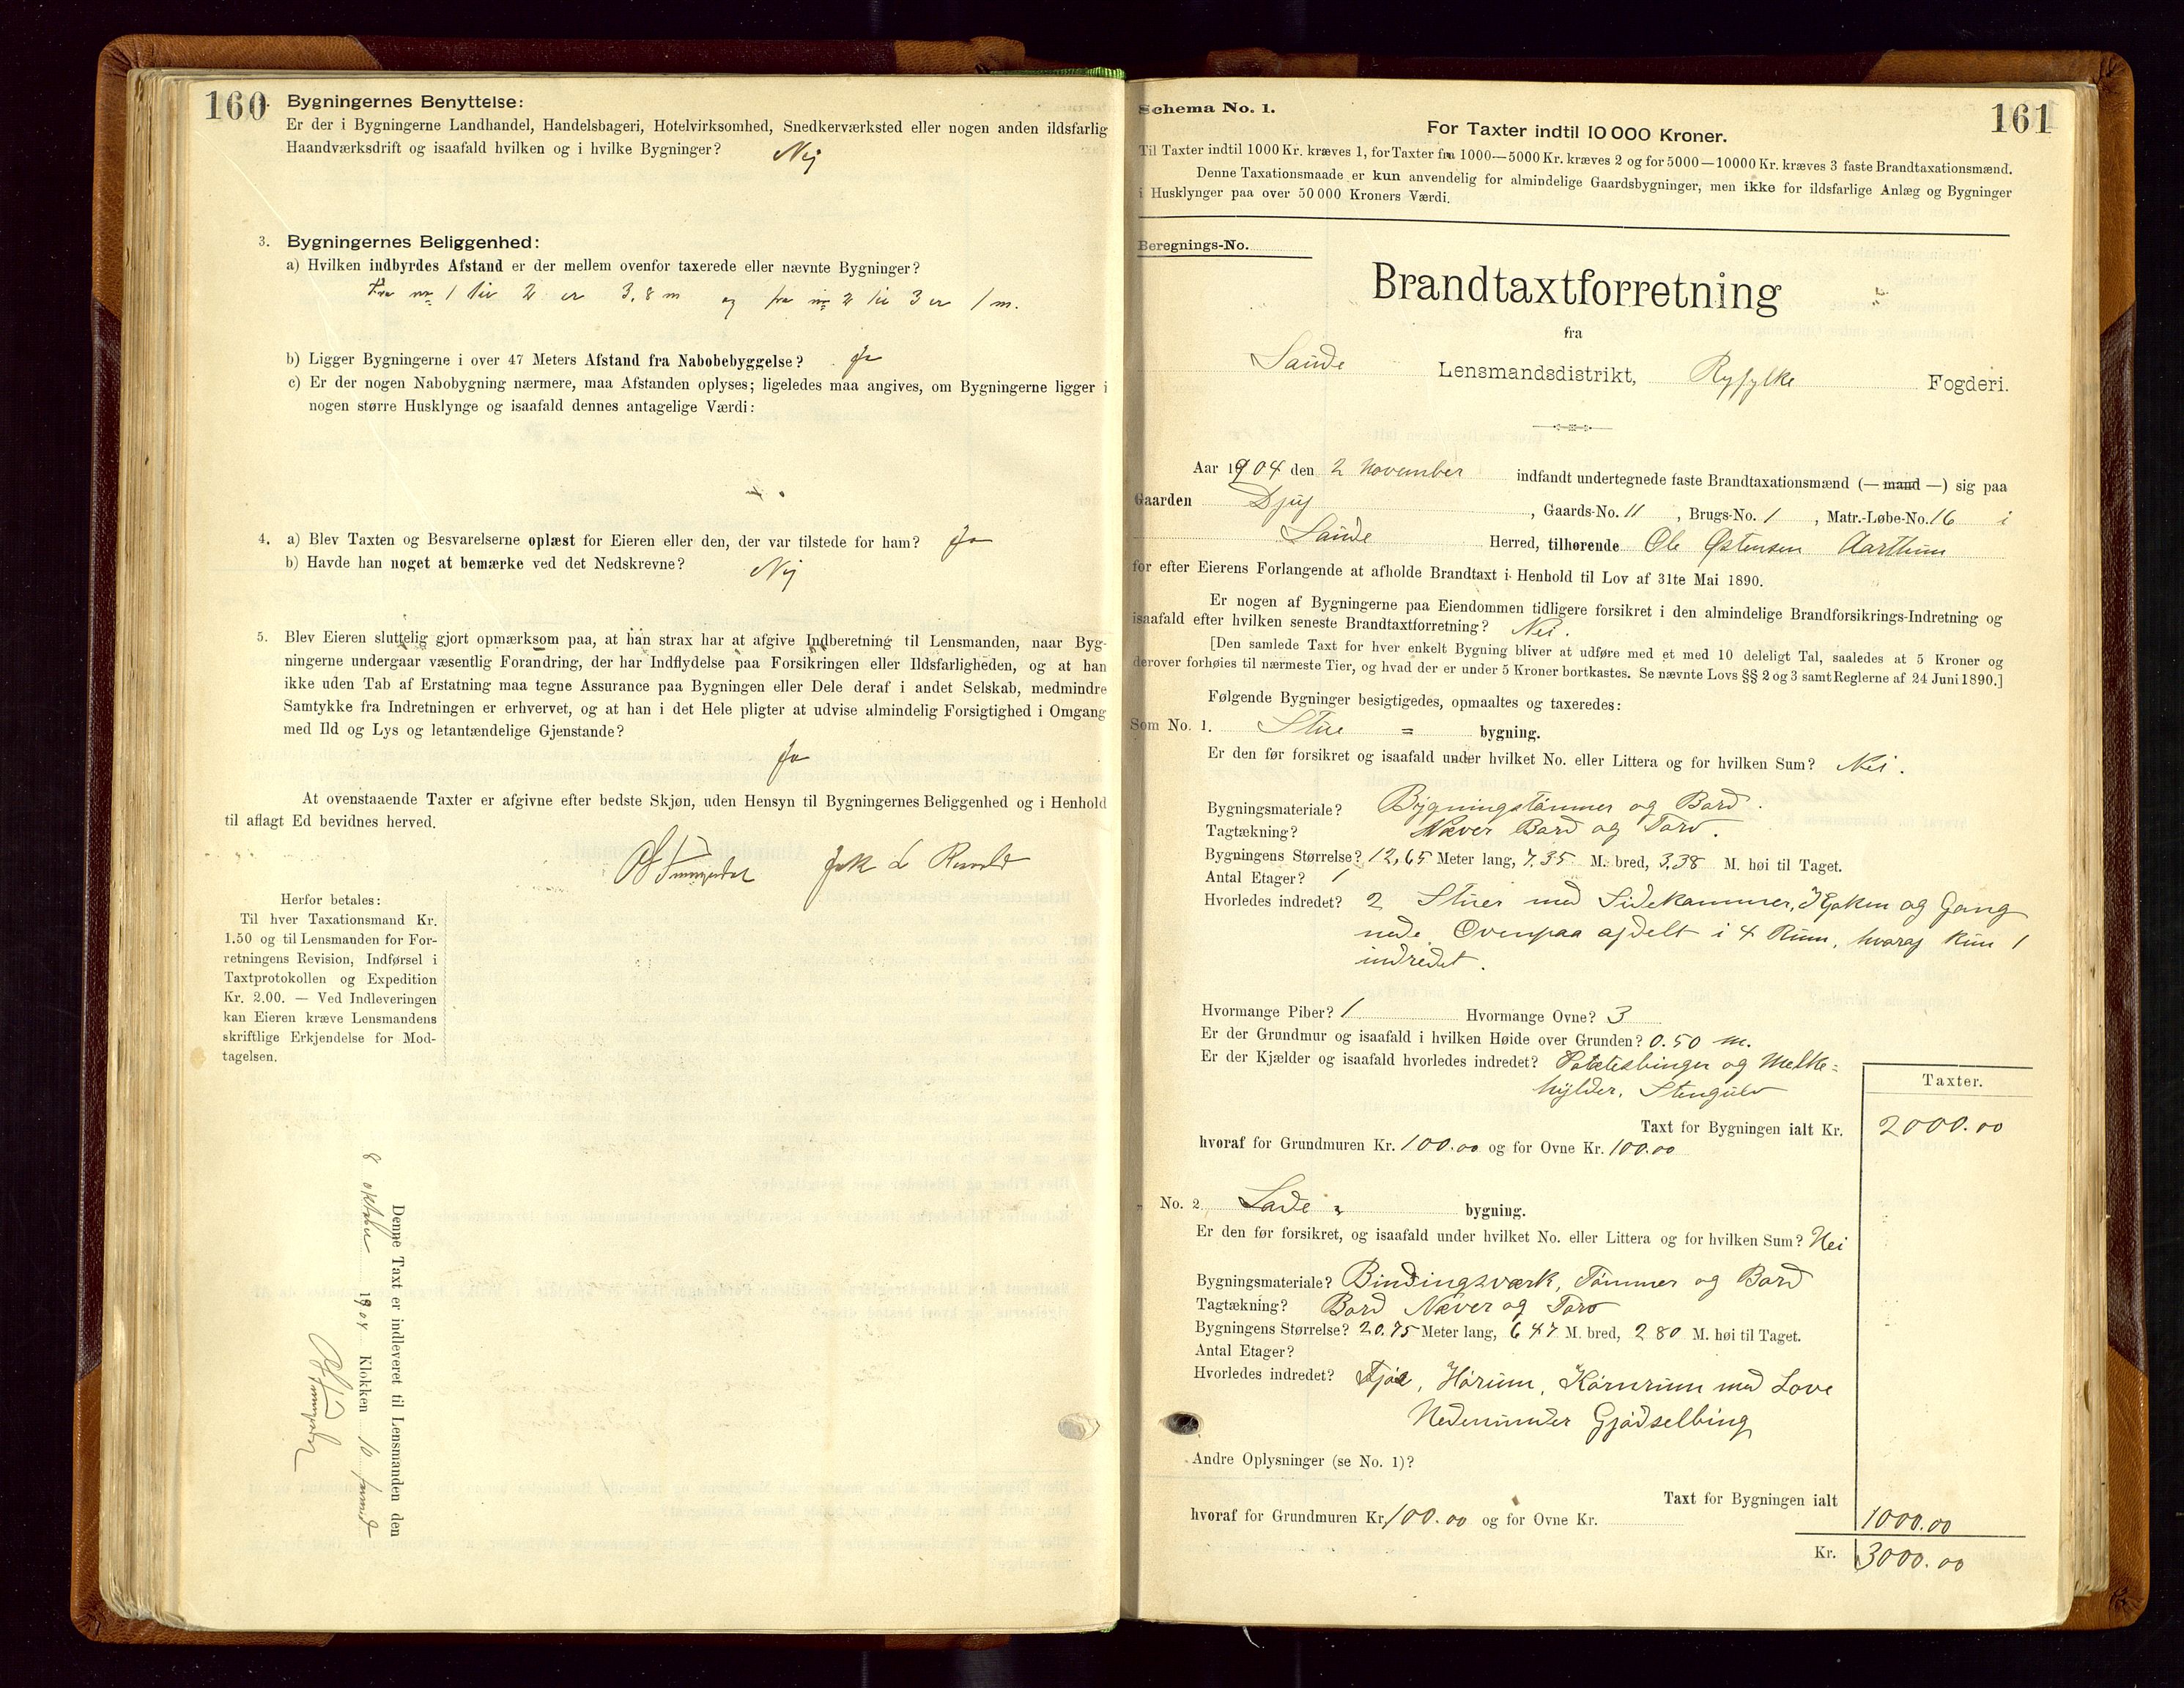 160
Bygningernes Benyttelse:
Er der i Bygningerne Landhandel, Handelsbageri, Hotelvirksomhed, Snedkerværksted eller nogen anden ildsfarlig
Haandværksdrift og isaafald hvilken og i hvilke Bygninger? Nej
3. Bygningernes Beliggenhed:
a) Hvilken indbyrdes Afstand er der mellem ovenfor taxerede eller nævnte Bygninger?
Fra no 1 til 2 er 3,8 m og fra no 2 til 3 er 1 m.
b) Ligger Bygningerne i over 47 Meters Afstand fra Nabobebyggelse? Ja
c) Er der nogen Nabobygning nærmere, maa Afstanden oplyses; ligeledes maa angives, om Bygningerne ligger i
nogen større Husklynge og isaafald dennes antagelige Værdi:
4. a) Blev Taxten og Besvarelserne oplæst for Eieren eller den, der var tilstede for ham? Ja
b) Havde han noget at bemærke ved det Nedskrevne? Nej
5. Blev Eieren sluttelig gjort opmærksom paa, at han strax har at afgive Indberetning til Lensmanden, naar Byg-
ningerne undergaar væsentlig Forandring, der har Indflydelse paa Forsikringen eller Ildsfarligheden, og at han
ikke uden Tab af Erstatning maa tegne Assurance paa Bygningen eller Dele deraf i andet Selskab, medmindre
Samtykke fra Indretningen er erhvervet, og at han i det Hele pligter at udvise almindelig Forsigtighed i Omgang
med Ild og Lys og letantændelige Gjenstande?
Ja
At ovenstaaende Taxter er afgivne efter bedste Skjøn, uden Hensyn til Bygningernes Beliggenhed og i Henhold
til aflagt Ed bevidnes herved.
Herfor betales:
Til hver Taxationsmand Kr.
1.50 og til Lensmanden for For-
retningens Revision, Indførsel i
Taxtprotokollen og Expedition
Kr. 2.00. — Ved Indleveringen
kan Eieren kræve Lensmandens
skriftlige Erkjendelse for Mod-
tagelsen.
Denne Taxt er indleveret til Lensmanden den
8 oktober 1904 Klokken 10 formid
161
Schema No. 1.
For Taxter indtil 10 000 Kroner.
Til Taxter indtil 1000 Kr. kræves 1, for Taxter fra 1000—5000 Kr. kræves 2 og for 5000—10000 Kr. kræves 3 faste Brandtaxationsmænd.
Denne Taxationsmaade er kun anvendelig for almindelige Gaardsbygninger, men ikke for ildsfarlige Anlæg og Bygninger
i Husklynger paa over 50 000 Kroners Værdi.
Beregnings-No.
Brandtaxtforretning
fra
Saude Lensmandsdistrikt, Ryfylke Fogderi.
Aar 1904 den 2 November indfandt undertegnede faste Brandtaxationsmænd (— mand —) sig paa
Gaarden Djuv, Gaards-No. 11, Brugs-No. 1, Matr.-Løbe-No. 16 i
Saude Herred, tilhørende Ole Østensen Aarthun
for efter Eierens Forlangende at afholde Brandtaxt i Henhold til Lov af 31te Mai 1890.
Er nogen af Bygningerne paa Eiendommen tidligere forsikret i den almindelige Brandforsikrings-Indretning og
isaafald efter hvilken seneste Brandtaxtforretning? Nei.
[Den samlede Taxt for hver enkelt Bygning bliver at udføre med et med 10 deleligt Tal, saaledes at 5 Kroner og
derover forhøies til nærmeste Tier, og hvad der er under 5 Kroner bortkastes. Se nævnte Lovs §§ 2 og 3 samt Reglerne af 24 Juni 1890.]
Følgende Bygninger besigtigedes, opmaaltes og taxeredes:
Som No. 1. Stue = bygning.
Er den før forsikret og isaafald under hvilket No. eller Littera og for hvilken Sum? Nei.
Bygningsmateriale? Bygningstømmer og Bord.
Tagtækning? Næver Bord og Torv.
Bygningens Størrelse? 12,65 Meter lang, 7.35 M. bred, 3.38 M. høi til Taget.
Antal Etager? 1
Hvorledes indredet? 2 Stuer med Sidekammer, Kjøken og Gang
nede. Ovenpaa afdelt i 4 Rum, hvoraf kun 1
indredet.
Hvormange Piber? 1 Hvormange Ovne? 3
Er der Grundmur og isaafald i hvilken Høide over Grunden? 0.50 m.
Er der Kjælder og isaafald hvorledes indredet? Potetesbinger og Melke=
hylder. Stengulv
Taxter.
Taxt for Bygningen ialt Kr. 2000.00
hvoraf for Grundmuren Kr. 100.00 og for Ovne Kr. 100.00
" No. 2. Lade = bygning.
Er den før forsikret, og isaafald under hvilket No. eller Littera og for hvilken Sum? Nei
Bygningsmateriale? Bindingsværk, Tømmer og Bord
Tagtækning? Bord Næver og Torv
Bygningens Størrelse? 20.75 Meter lang, 6 47 M. bred, 2 80 M. høi til Taget.
Antal Etager?
Hvorledes indredet? Fjøs, Hørum, Kørnrum med Love
Nedenunder Gjødselbing
Andre Oplysninger (se No. 1)?
Taxt for Bygningen ialt 1000.00
hvoraf for Grundmuren Kr. 100.00 og for Ovne Kr.
Kr. 3000.00